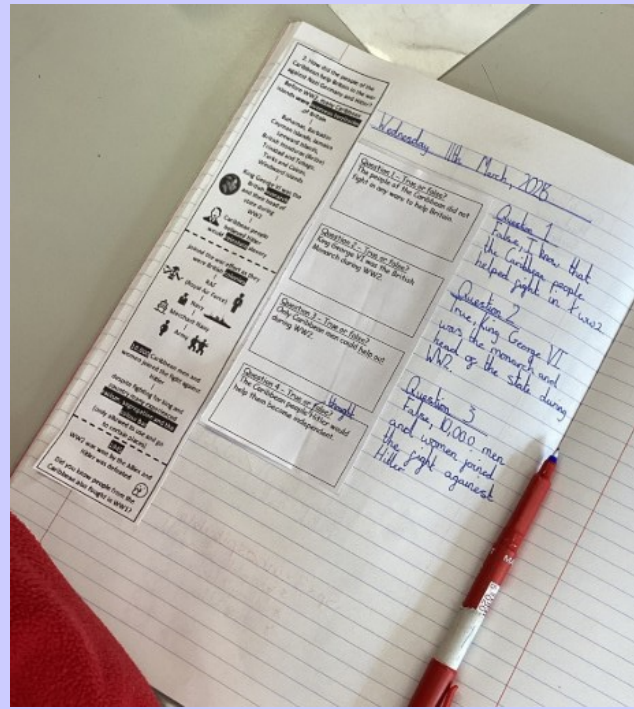 2. How did the people of the
Caribbean help Britain in the war
against Nazi Germany and Hitler?
Before WW2, many Caribbean
islands were
of Britain
Bahamas, Barbados
Cayman Islands, Jamaica
Leeward Islands,
British Honduras (Belize)
Trinidad and Tobago,
Turks and Caicos,
Windward Islands
King George VI was the
British
and then head of
state during
WW2
Caribbean people
believed Hitler
would slavery
Joined the war effort as they
were British
RAF
(Royal Air Force)
Navy
Merchant Navy
Army
Caribbean men and
women joined the fight against
Hitler
despite fighting for king and
country many experienced
racism, segregation and the
(only allowed to use and go
to certain places)
WW2 was won by the Allies and
Hitler was defeated
Did you know people from the
Caribbean also fought in WW1?
Wednesday 11th March, 2026
Question 1 - True or False?
The people of the Caribbean did not
fight in any wars to help Britain.
Question 2 - True or False?
King George VI was the British
Monarch during WW2.
Question 3 - True or False?
Only Caribbean men could help out
during WW2.
Question 4 - True or False?
thought
The Caribbean people Hitler would
help them become independent.
Question 1
False, I know that
the Caribbean people
helped fight in ww2
Question 2
True, King George VI
was the monarch and
head of the state during
WW2.
Question 3
False, 10,000 men
and women joined
the fight againest
Hitler